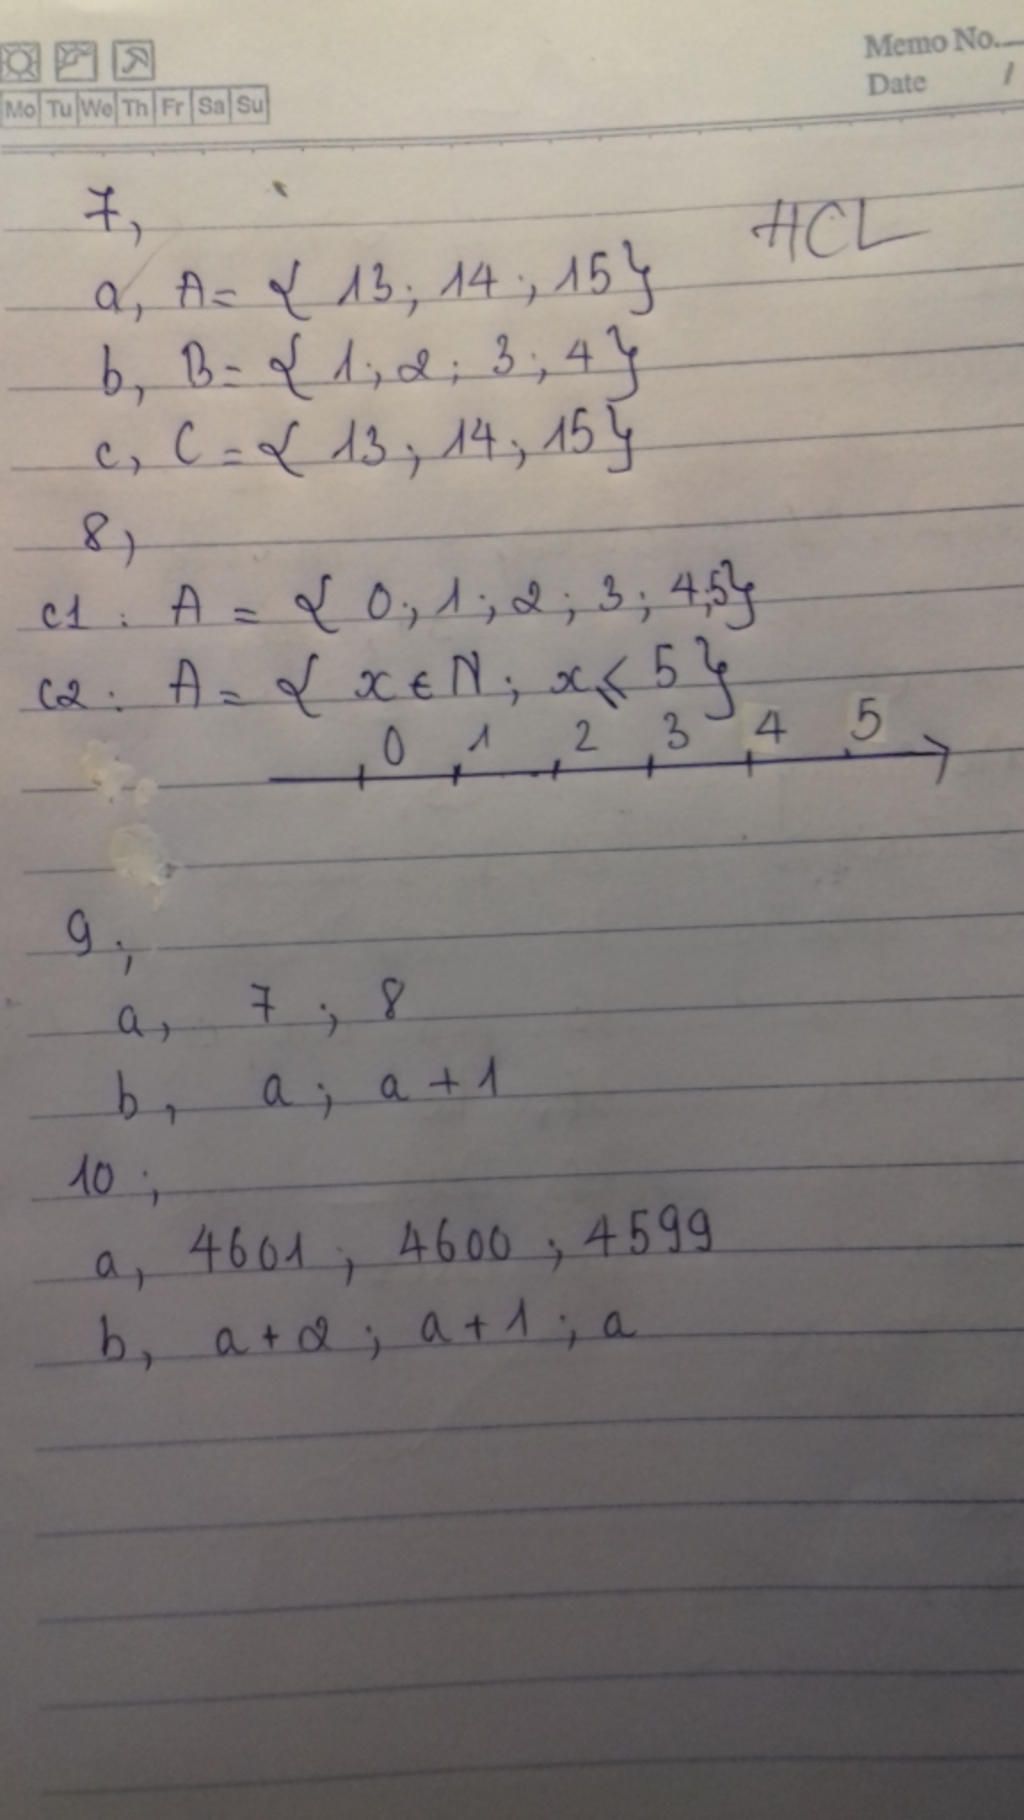 Memo No.
Mo Tu We Th Fr Sa Su
Date /
7,
HCL
a, A = { 13; 14; 15}
b, B = { 1; 2; 3; 4}
c, C = { 13; 14; 15}
8,
c1: A = { 0; 1; 2; 3; 4;5}
c2: A = { x ∈ N; x ⩽ 5 }
0 1 2 3 4 5
9;
a, 7; 8
b, a; a + 1
10;
a, 4601; 4600; 4599
b, a + 2; a + 1; a